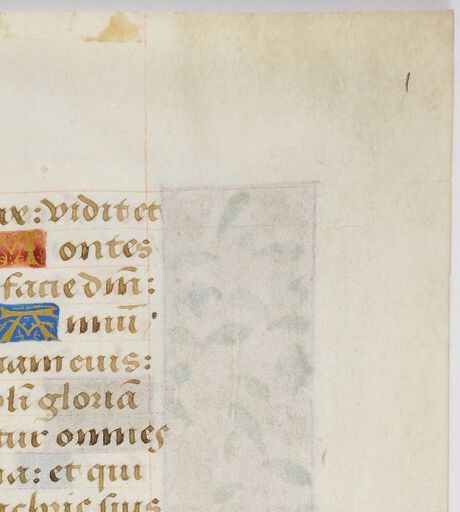 1
vidit et
Montes
facie dñi:
Annū
iam eius:
pl̃i gloriā
tur omnes
ia: et qui
achris suis